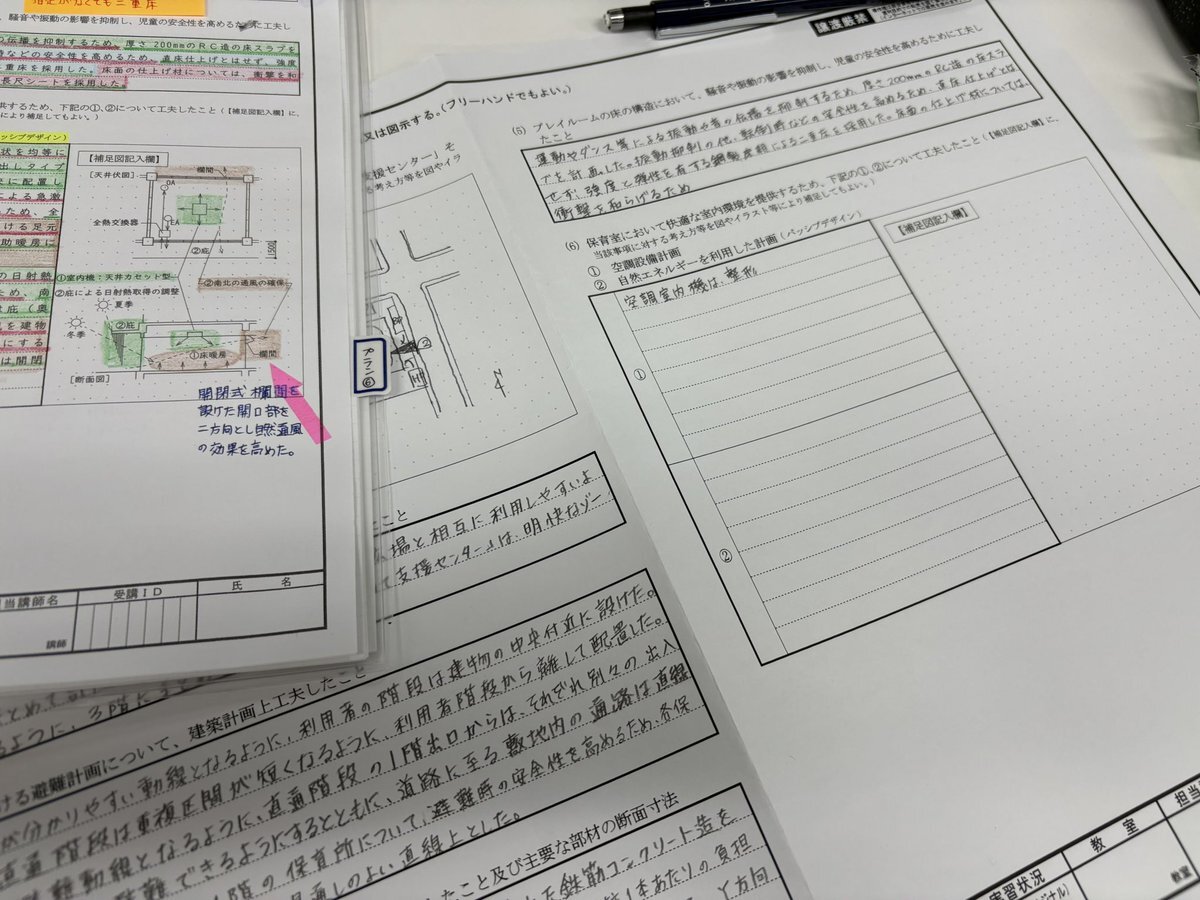 指定がなくても二重床
、騒音や振動の影響を抑制し、児童の安全性を高めるために工夫し
の伝播を抑制するため、厚さ200mmのRC造の床スラブを
時などの安全性を高めるため、直床仕上げとはせず、強度
二重床を採用した。床面の仕上げ材については、衝撃を和
長尺シートを採用した。
供するため、下記の①、②について工夫したこと(【補足図記入欄】に、
により補足してもよい。)
パッシブデザイン)
状を均等に
出しタイプ
に配置し
による急激
ため、全
ける足元
助暖房に
の日射熱
ため、南
は庇(奥
を建物
にする
は開閉
【補足図記入欄】
[天井伏図]
欄間
OA
全熱交換器
EA
②庇
1500
①室内機:天井カセット型
②南北の通風の確保
②庇による日射熱取得の調整
夏季
冬季
②庇
①床暖房
欄間
[断面図]
開閉式欄間を
設けた開口部を
二方向とし自然通風
の効果を高めた。
当講師名
受講ID
氏 名
講師
プラン⑥
又は図示する。(フリーハンドでもよい。)
支援センター」そ
る考え方等を図やイラ
N
たこと
、場と相互に利用しやすいよ
て支援センター」は、明快なゾー
建築計画上工夫したこと
ける避難計画について、
が分かりやすい動線となるように、利用者の階段は建物の中央付近に設けた。
直通階段は重複区間が短くなるように、利用者階段から離して配置した。
避難動線となるように、直通階段の1階出口からは、それぞれ別々の出入
避難できるようにするとともに、道路に至る敷地内の通路は直線
階の保育所について、避難時の安全性を高めるため、各保
見通しのよい直線上とした。
たこと及び主要な部材の断面寸法
た鉄筋コンクリート造を
1本あたりの負担
Y方向
譲渡厳禁
(5) プレイルームの床の構造において、騒音や振動の影響を抑制し、児童の安全性を高めるために工夫し
たこと
運動やダンス等による振動や音の伝播を抑制するため、厚さ200mmのRC造の床スラ
ブを計画した。振動抑制の他、転倒時などの安全性を高めるため、直床仕上げとは
せず、強度と弾性を有する鋼製床組による二重床を採用した。床面の仕上げ材については、
衝撃を和らげるため
(6) 保育室において快適な室内環境を提供するため、下記の①、②について工夫したこと(【補足図記入欄】に、
当該事項に対する考え方等を図やイラスト等により補足してもよい。)
① 空調設備計画
② 自然エネルギーを利用した計画(パッシブデザイン)
【補足図記入欄】
空調室内機は、整形
①
②
実習状況
教室
担当
教室